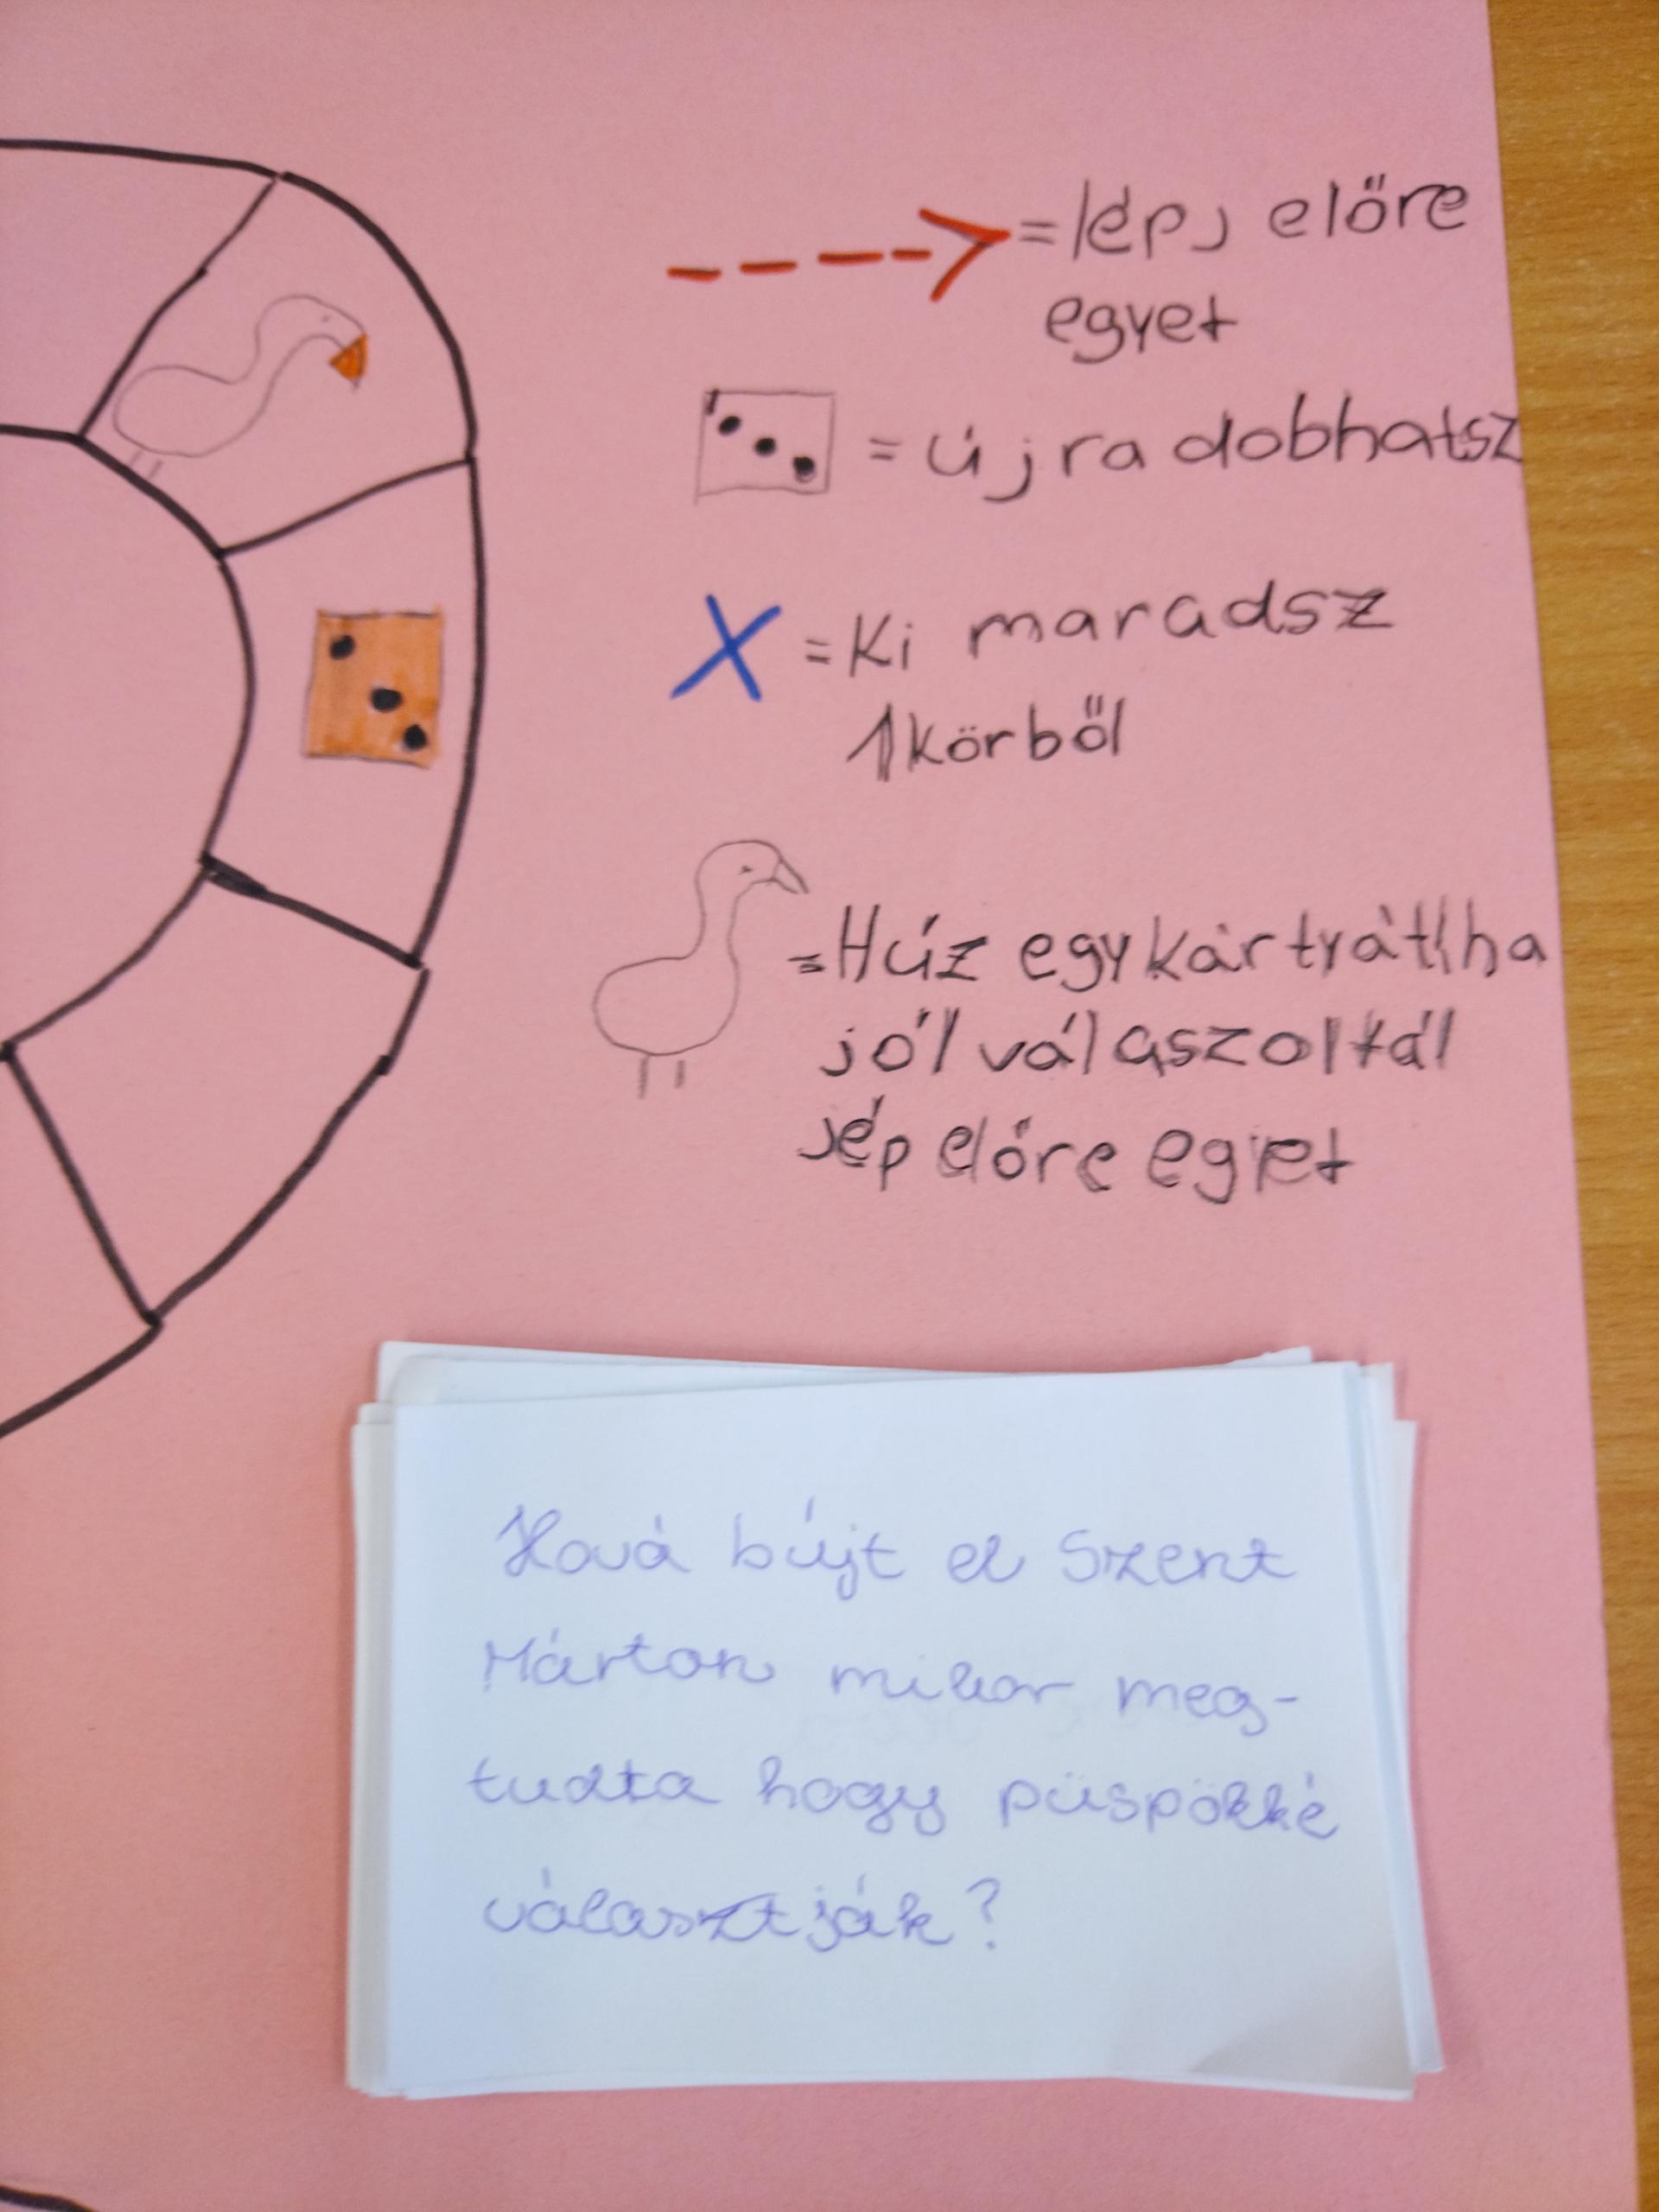 = lépj előre
egyet
= újra dobhatsz
= Ki maradsz
1 körből
= Húz egy kártyát ha
jól válaszoltál
lép előre egyet
Hová bújt el Szent
Márton mikor meg-
tudta hogy püspökké
választják?